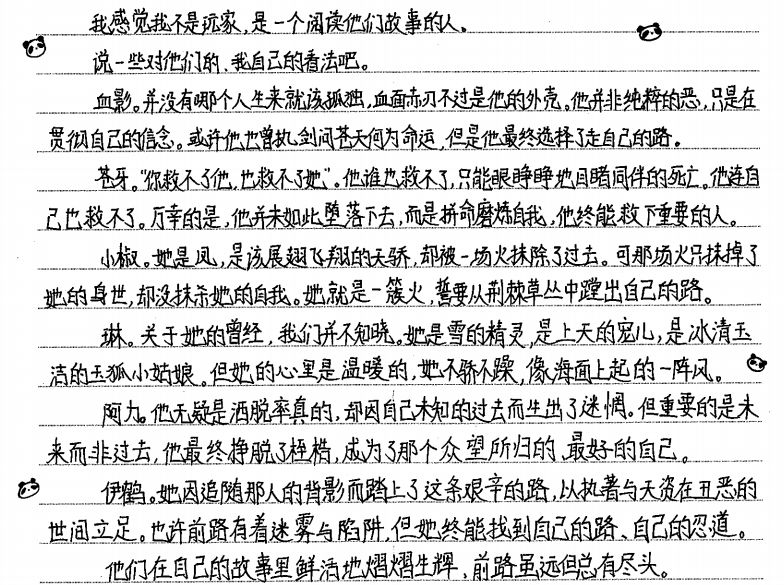 我感觉我不是玩家,是一个阅读他们故事的人。
说一些对他们的、我自己的看法吧。
血影。并没有哪个人生来就该孤独,血面赤刃不过是他的外壳。他并非纯粹的恶,只是在
贯彻自己的信念。或许他也曾执剑问苍天何为命运,但是他最终选择了走自己的路。
苍牙。“你救不了他,也救不了她”。他谁也救不了,只能眼睁睁地目睹同伴的死亡。他连自
己也救不了。万幸的是,他并未如此堕落下去,而是拼命磨炼自我,他终能救下重要的人。
小椒。她是凤,是该展翅飞翔的天骄,却被一场火抹除了过去。可那场火只抹掉了
她的身世,却没抹杀她的自我。她就是一簇火,誓要从荆棘草丛中蹚出自己的路。
琳。关于她的曾经,我们并不知晓。她是雪的精灵,是上天的宠儿,是冰清玉
洁的玉狐小姑娘。但她的心里是温暖的,她不骄不躁,像海面上起的一阵风。
阿九。他无疑是洒脱率真的,却因自己未知的过去而生出了迷惘。但重要的是未
来而非过去,他最终挣脱了桎梏,成为了那个众望所归的、最好的自己。
伊鹤。她因追随那人的背影而踏上了这条艰辛的路,以执著与天资在丑恶的
世间立足。也许前路有着迷雾与陷阱,但她终能找到自己的路、自己的忍道。
他们在自己的故事里鲜活地熠熠生辉,前路虽远但总有尽头。